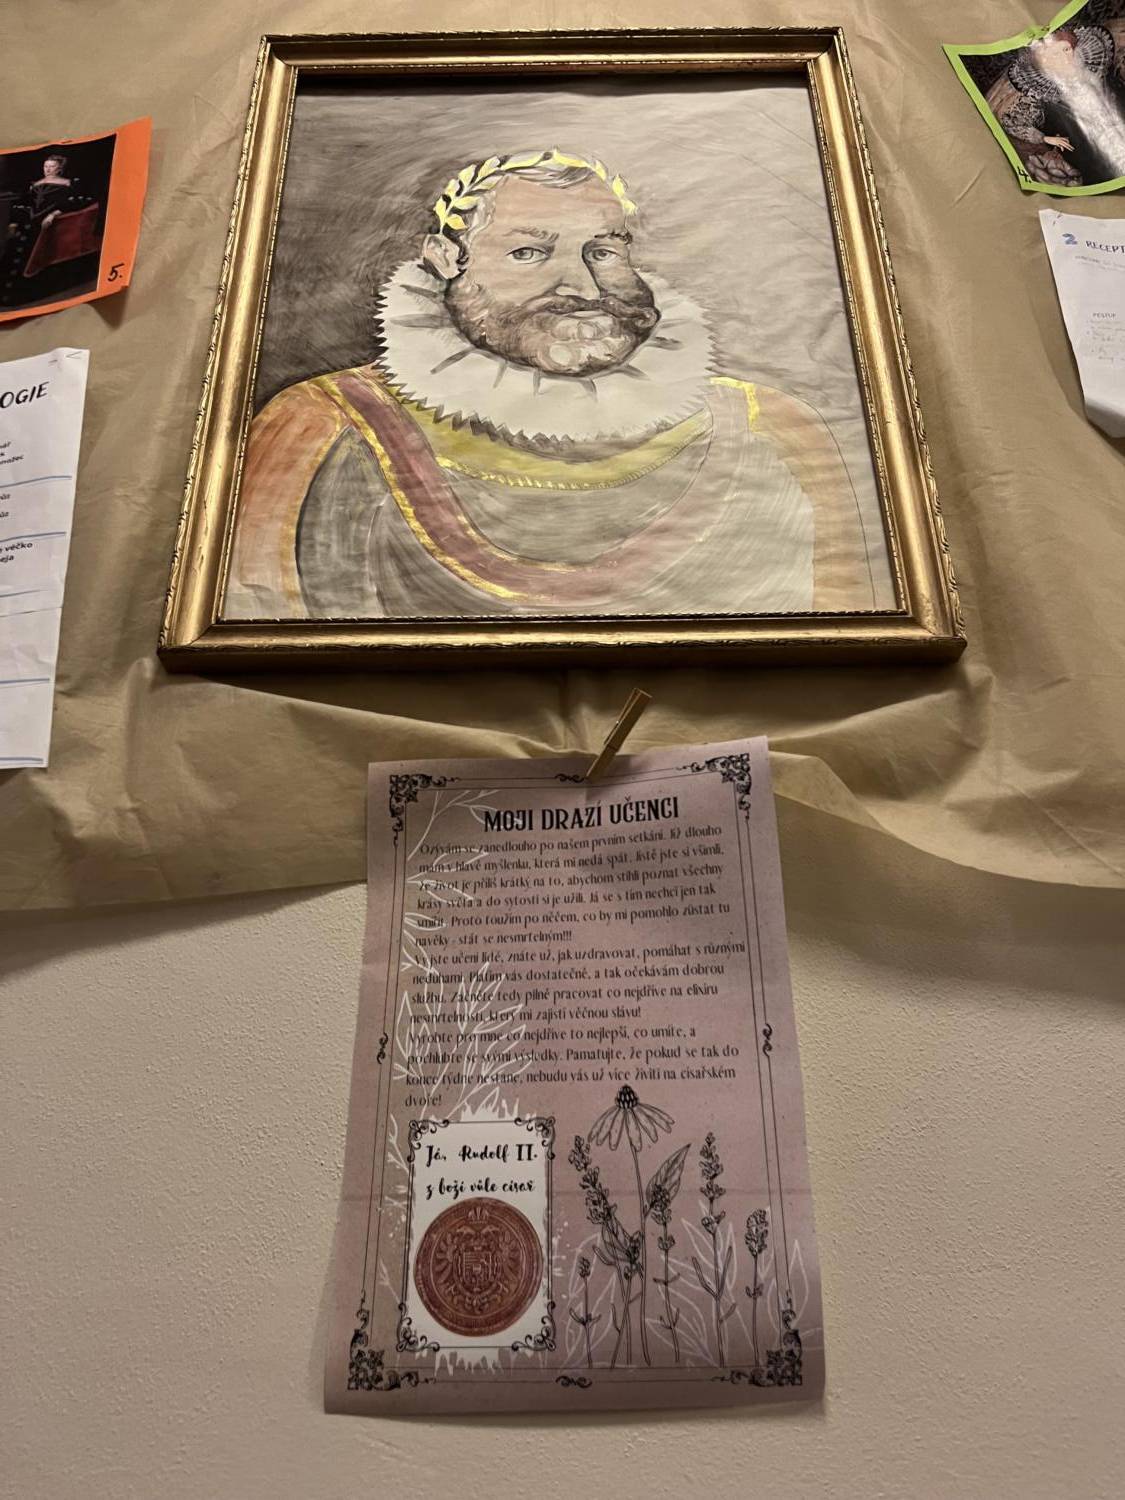 5.
4.
OGIE
nář
k
mražec
růz
růz
o věčko
eja
2 RECEPT
POSTUP
MOJI DRAZÍ UČENCI
Ozývám se zanedlouho po našem prvním setkání. Již dlouho
mám v hlavě myšlenku, která mi nedá spát. Jistě jste si všimli,
že život je příliš krátký na to, abychom stihli poznat všechny
krásy světa a do sytosti si je užili. Já se s tím nechci jen tak
smířit. Proto toužím po něčem, co by mi pomohlo zůstat tu
navěky - stát se nesmrtelným!!!
Vy jste učení lidé, znáte už, jak uzdravovat, pomáhat s různými
neduhami. Platím vás dostatečně, a tak očekávám dobrou
službu. Začněte tedy pilně pracovat co nejdříve na elixíru
nesmrtelnosti, který mi zajistí věčnou slávu!
Vyrobte pro mne co nejdříve to nejlepší, co umíte, a
pochlubte se svými výsledky. Pamatujte, že pokud se tak do
konce týdne nestane, nebudu vás už více živiti na císařském
dvoře!
Já, Rudolf II.
z boží vůle císař